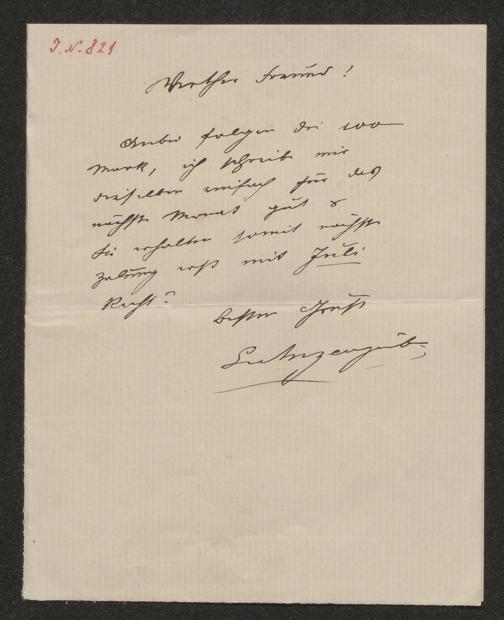 I.N. 821
Werther Freund!
Anbei folgen die 100
Mark, ich schreibe mir
dieselben einfach für das
nächste Monat gut &
Sie erhalten somit nächste
Zalung erst mit Juli
Recht?
Besten Gruß
LAnzengruber